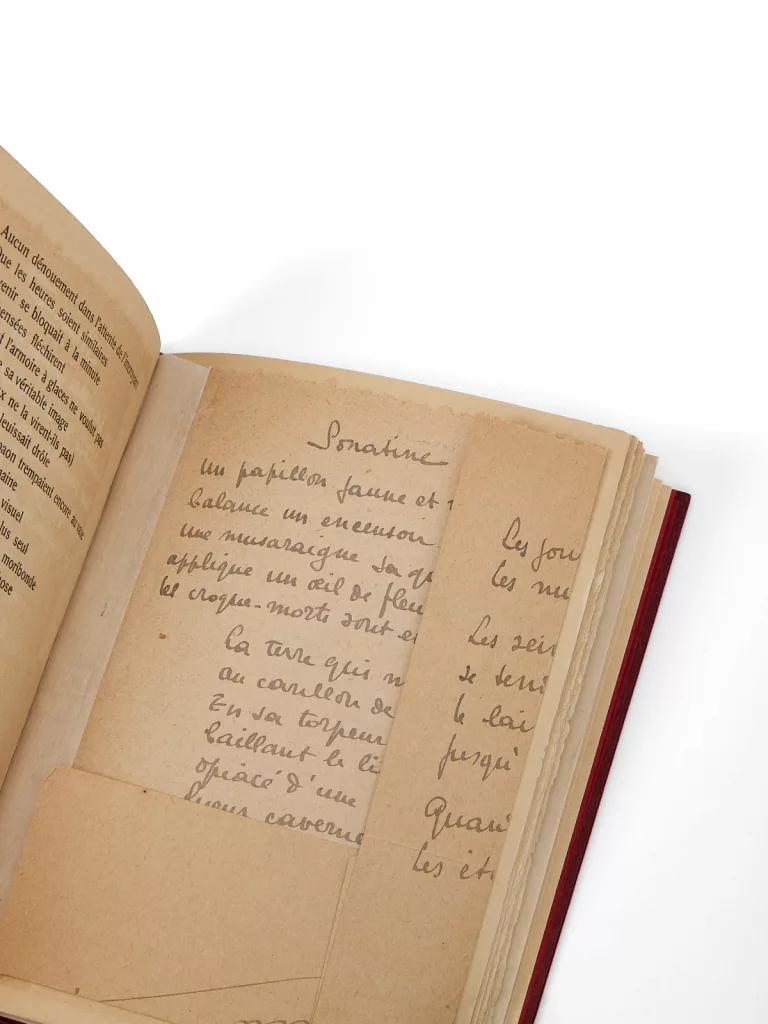 Aucun dénouement dans l'attente de l'important
Que les heures soient similaires
venir se bloquait à la minute
pensées fléchirent
t l'armoire à glaces ne voulut pas
e sa véritable image
x ne la virent-ils pas)
leuissait drôle
naon trempaient encore au vase
naine
visuel
lus seul
moribonde
ose
Sonatine
un papillon jaune et
balance un encensoir
une musaraigne sa
applique un œil de fleu
les croque-morts sont
La terre qui
au carillon de
En sa torpeur
baillant le li
opiacé d'une
caverne
Les jou
Les nu
Les sein
se
le lai
jusqu'
Quan
Les ét